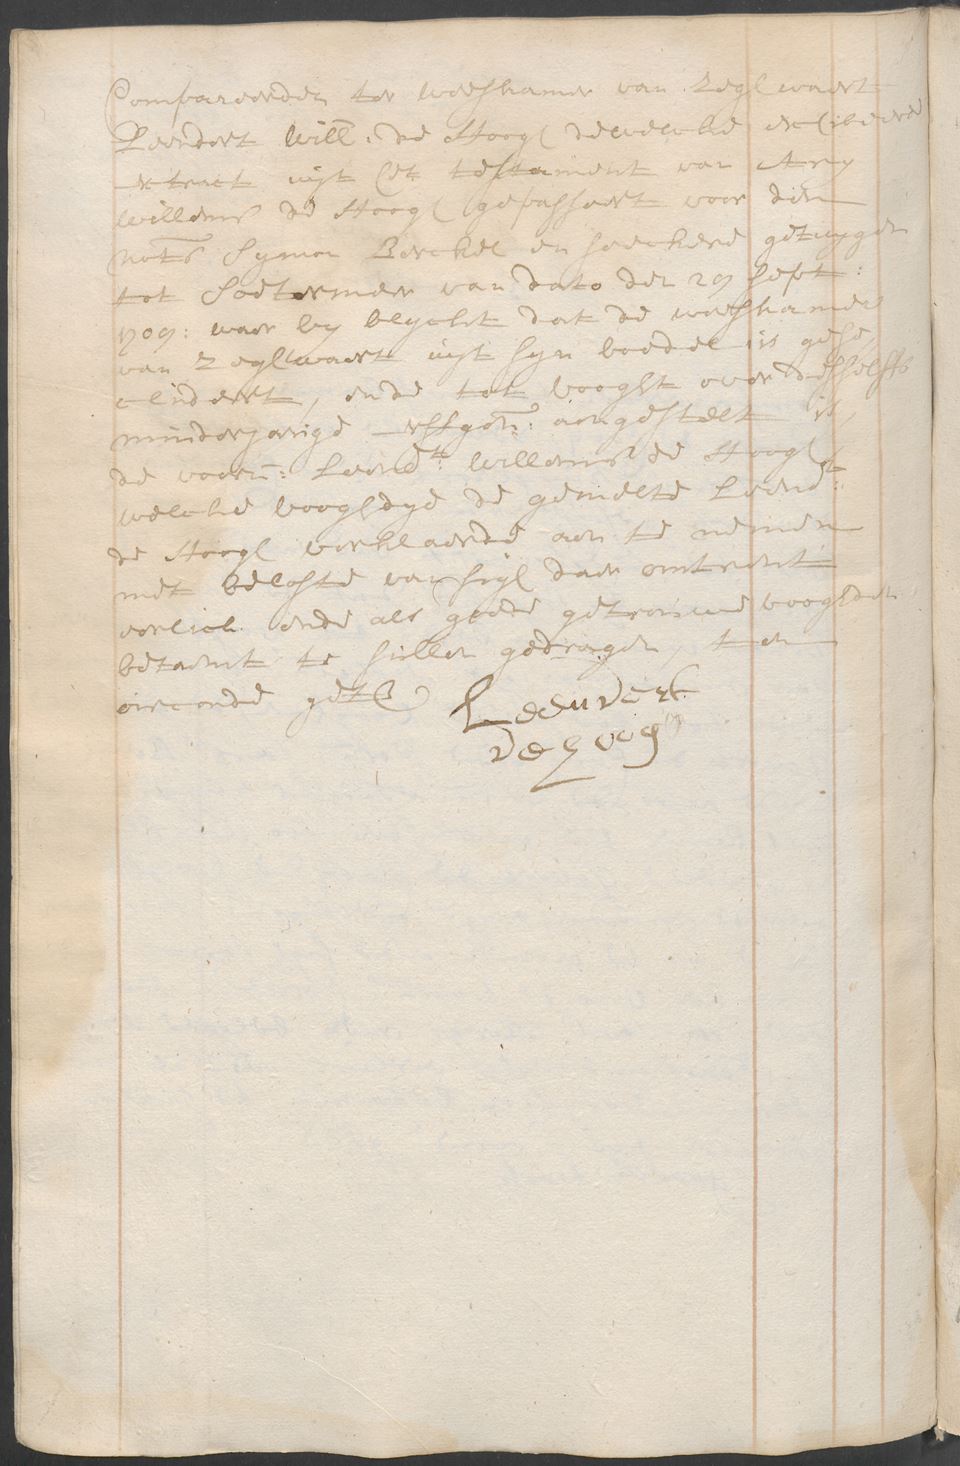 Compareerden ter weeshamer van Zegl waert
Leendert Will: de Hoogh dewelcke exhibeerde
extract uijt het testament van Arij
Willems de Hoogh gepasseert voor den
nots Symon Berckel en seeckere getuygen
tot Soetermeer van dato den 29 sept:
1709: waer by blyckt dat de weeshamer
van Zeglwaert uijt syn boedel iis gese,
cludeert, ende tot vooght over desselfs
minderjarige erffgen: aengestelt is,
de voorn: Leendt: Willems de Hoogh
welcke vooghdye de gemelte Leendt:
de Hoogh verklaerde aen te nemen
met belofte van sigh daer omtrent
eerlick ende als goede getrouwe vooghden
betaemt te sullen gedragen, ten
oirconde get
Leendert
de hoogh